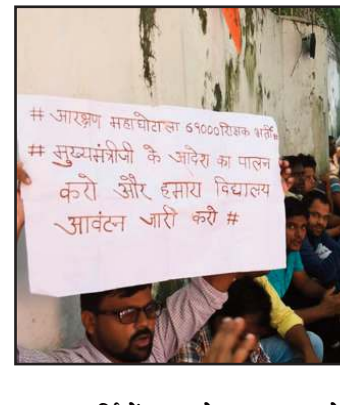 # आरक्षण महाघोटाला 69000 शिक्षक भर्ती #
# मुख्यमंत्रीजी के आदेश का पालन
करो और हमारा विद्यालय
आवंटन जारी करो #